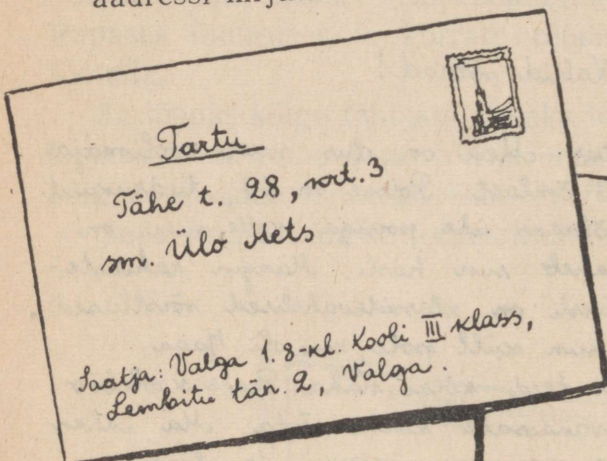 Tartu
Tähe t. 28, krt. 3
sm. Ülo Mets
Saatja: Valga 1. 8-kl. Kooli III klass,
Lembitu tän. 2, Valga.